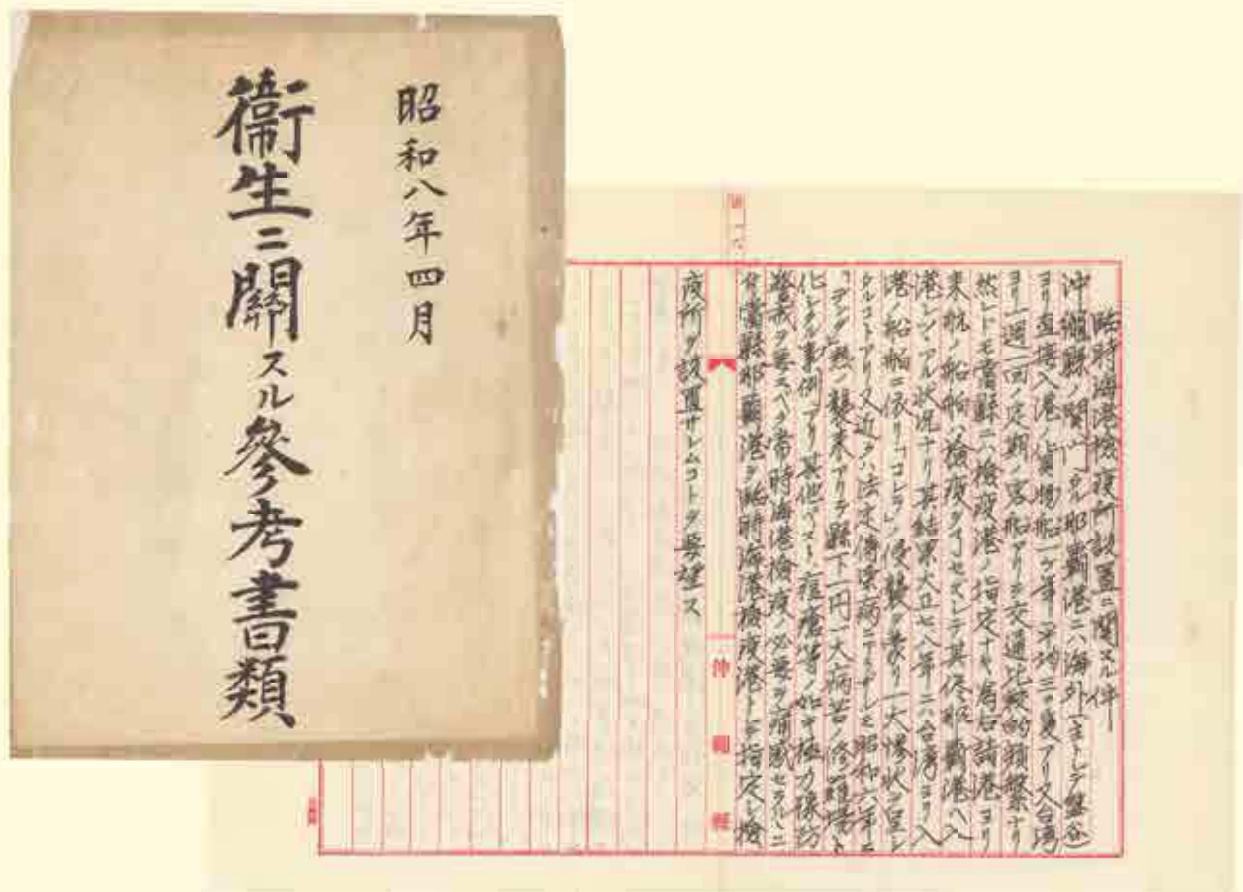 昭和八年四月
衞生ニ關スル參考書類
臨時海港檢疫所設置ニ関スル件
沖縄縣ノ関門タル那覇港ニハ海外(主トシテ盤谷)
ヨリ直接入港ノ貨物船一ケ年平均三〇隻アリ又台湾
ヨリ一週一回ノ定期ノ客船アリテ交通比較的頻繁ナリ
然レドモ當縣ニハ檢疫港ノ指定ナキ為右諸港ヨリ
来航ノ船舶ハ檢疫ヲナサズシテ其侭那覇港ヘ入
港シツヽアル状況ナリ其結果大正七八年ニハ台湾ヨリ入
港ノ船舶ニ依リ「コレラ」ノ侵襲ヲ蒙リ一大惨状ヲ呈シ
タルコトアリ又近クハ法定傳染病ニアラザレ共昭和六年ニ
「デング」熱ノ襲来アリテ縣下一円一大病苦ノ修羅場ト
化シタル事例アリ其他ペスト痘瘡等ノ如キ極力豫防
警戒ヲ要スベク常時海港檢疫ノ必要ヲ痛感セラルヽニ
付當縣那覇港ヲ臨時海港檢疫港トシテ指定シ檢
疫所ヲ設置サレムコトヲ要望ス
沖繩縣